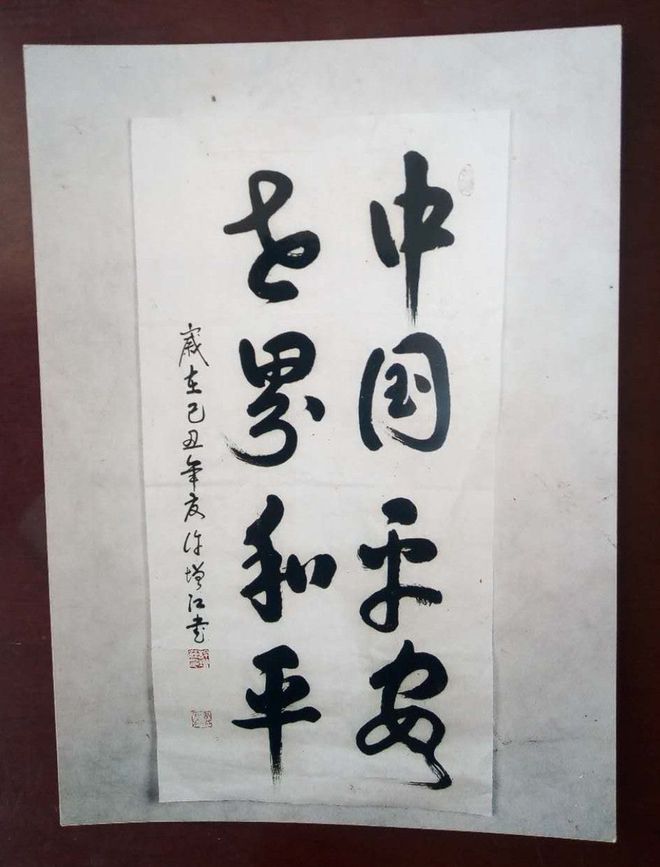 中国平安
世界和平
歲在己丑年夏许增江书